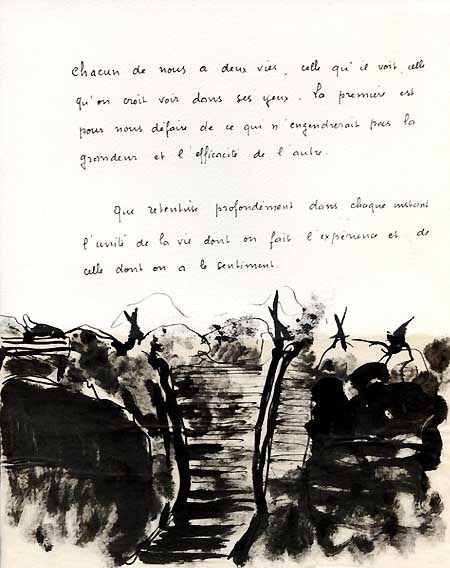 Chacun de nous a deux vies, celle qu'il voit, celle
qu'on croit voir dans ses yeux. La première est
pour nous défaire de ce qui n'engendrerait pas la
grandeur et l'efficacité de l'autre.
Que retentisse profondément dans chaque instant
l'unité de la vie dont on fait l'expérience et de
celle dont on a le sentiment.